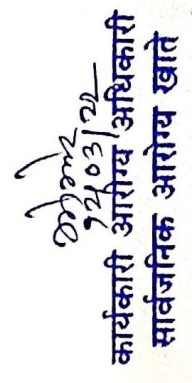 १५/०३/२२
कार्यकारी आरोग्य अधिकारी
सार्वजनिक आरोग्य खाते